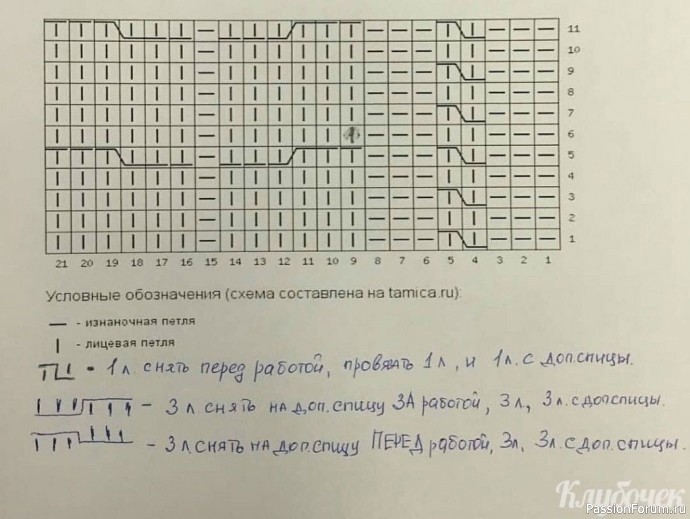 11
10
9
8
7
6
5
4
3
2
1
21 20 19 18 17 16 15 14 13 12 11 10 9 8 7 6 5 4 3 2 1
Условные обозначения (схема составлена на tamica.ru):
— - изнаночная петля
| - лицевая петля
- 1 л. снять перед работой, провязать 1 л, и 1 л. с доп.спицы.
- 3 л. снять на доп.спицу ЗА работой, 3 л, 3 л. с доп спицы.
- 3 л. снять на доп.спицу ПЕРЕД работой, 3 л, 3 л. с доп.спицы.
Клубочек
PassionForum.ru